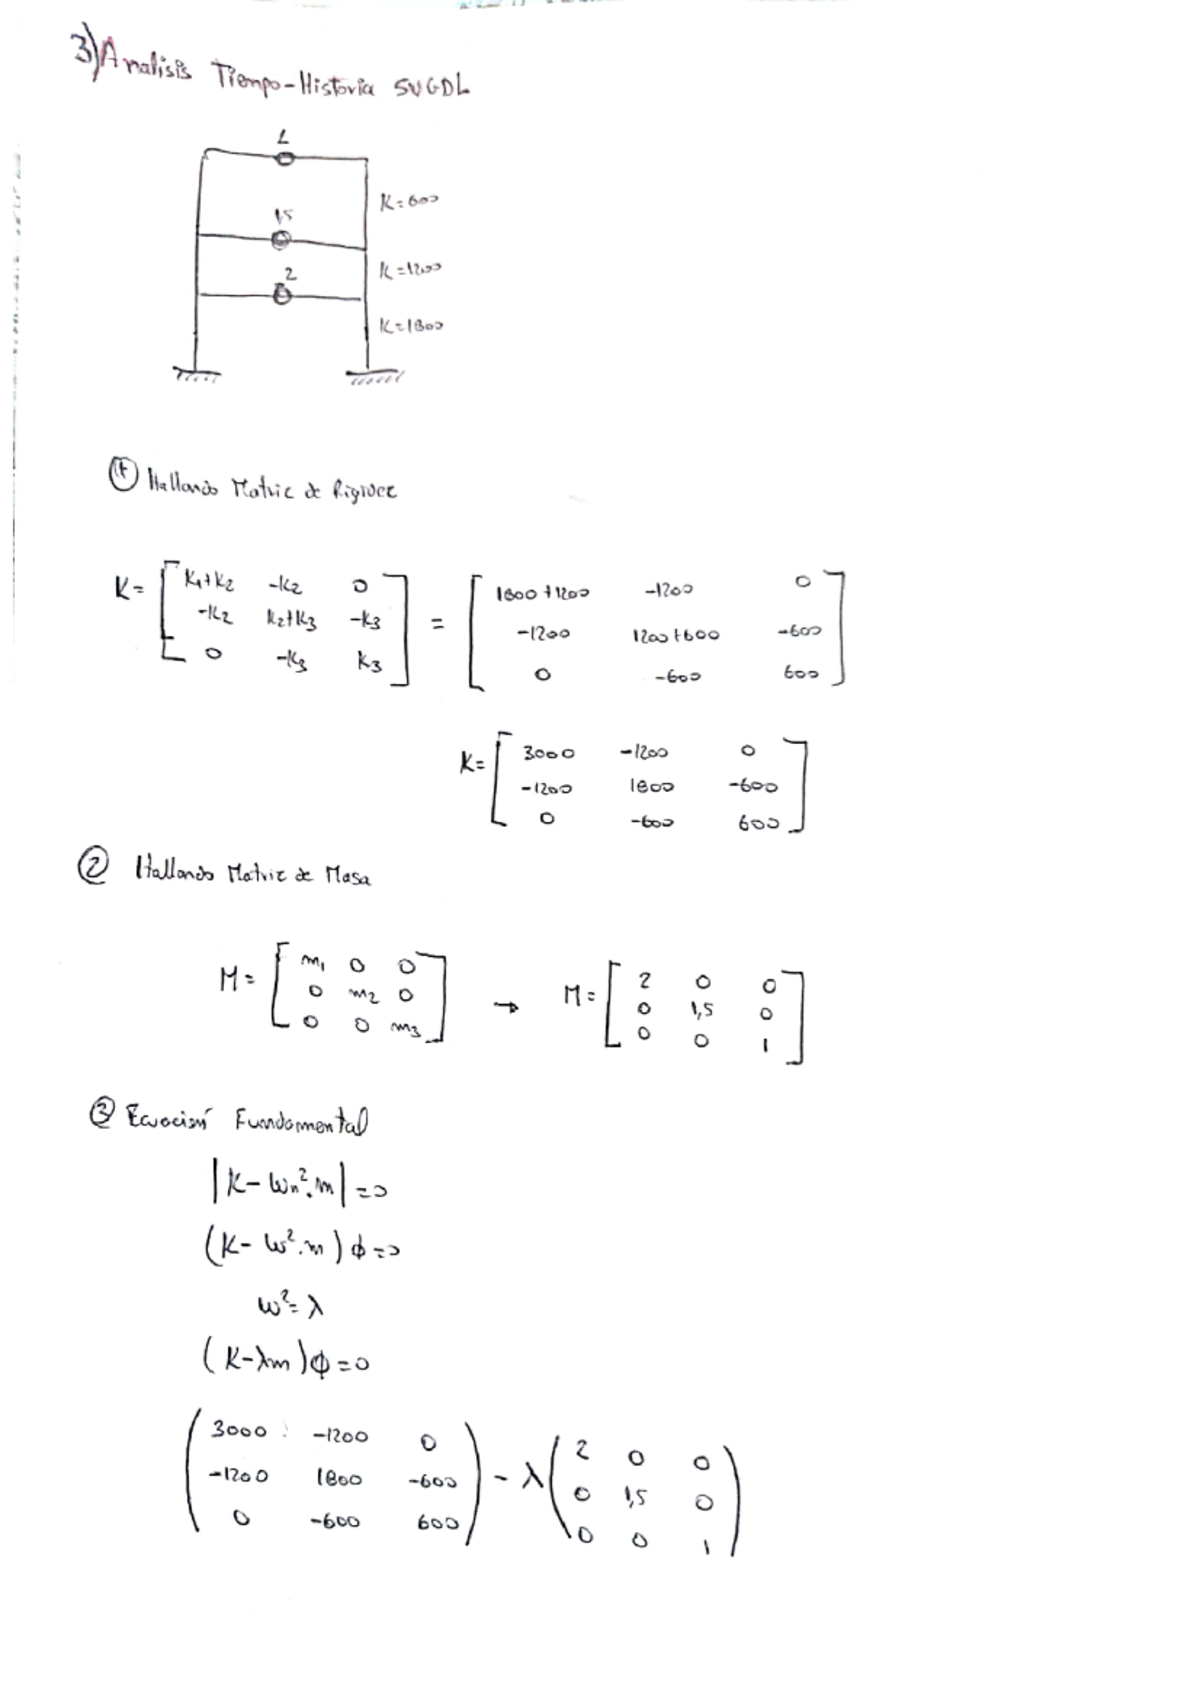 3) Analisis Tiempo-Historia SVGDL
1
K=600
1,5
K=1200
2
K=1800
① Hallando Matriz de Rigidez
K= [ K1+K2 -K2 0 ] = [ 1800+1200 -1200 0 ]
[ -K2 K2+K3 -K3 ] [ -1200 1200+600 -600 ]
[ 0 -K3 K3 ] [ 0 -600 600 ]
K= [ 3000 -1200 0 ]
[ -1200 1800 -600 ]
[ 0 -600 600 ]
② Hallando Matriz de Masa
M= [ m1 0 0 ] → M= [ 2 0 0 ]
[ 0 m2 0 ] [ 0 1,5 0 ]
[ 0 0 m3 ] [ 0 0 1 ]
③ Ecuación Fundamental
|K-Wn².m|=0
(K-W².m)ϕ=0
W²=λ
(K-λm)ϕ=0
( 3000 -1200 0 ) - λ ( 2 0 0 )
( -1200 1800 -600 ) ( 0 1,5 0 )
( 0 -600 600 ) ( 0 0 1 )